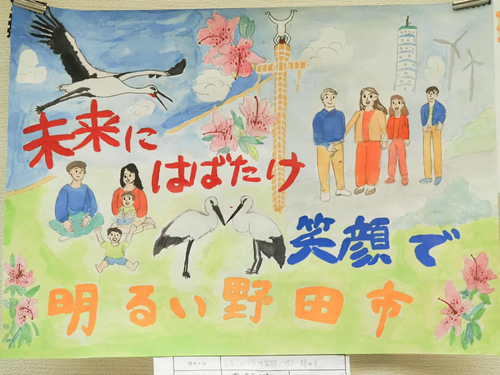 未来に
はばたけ
笑顔で
明るい野田市
タイトル